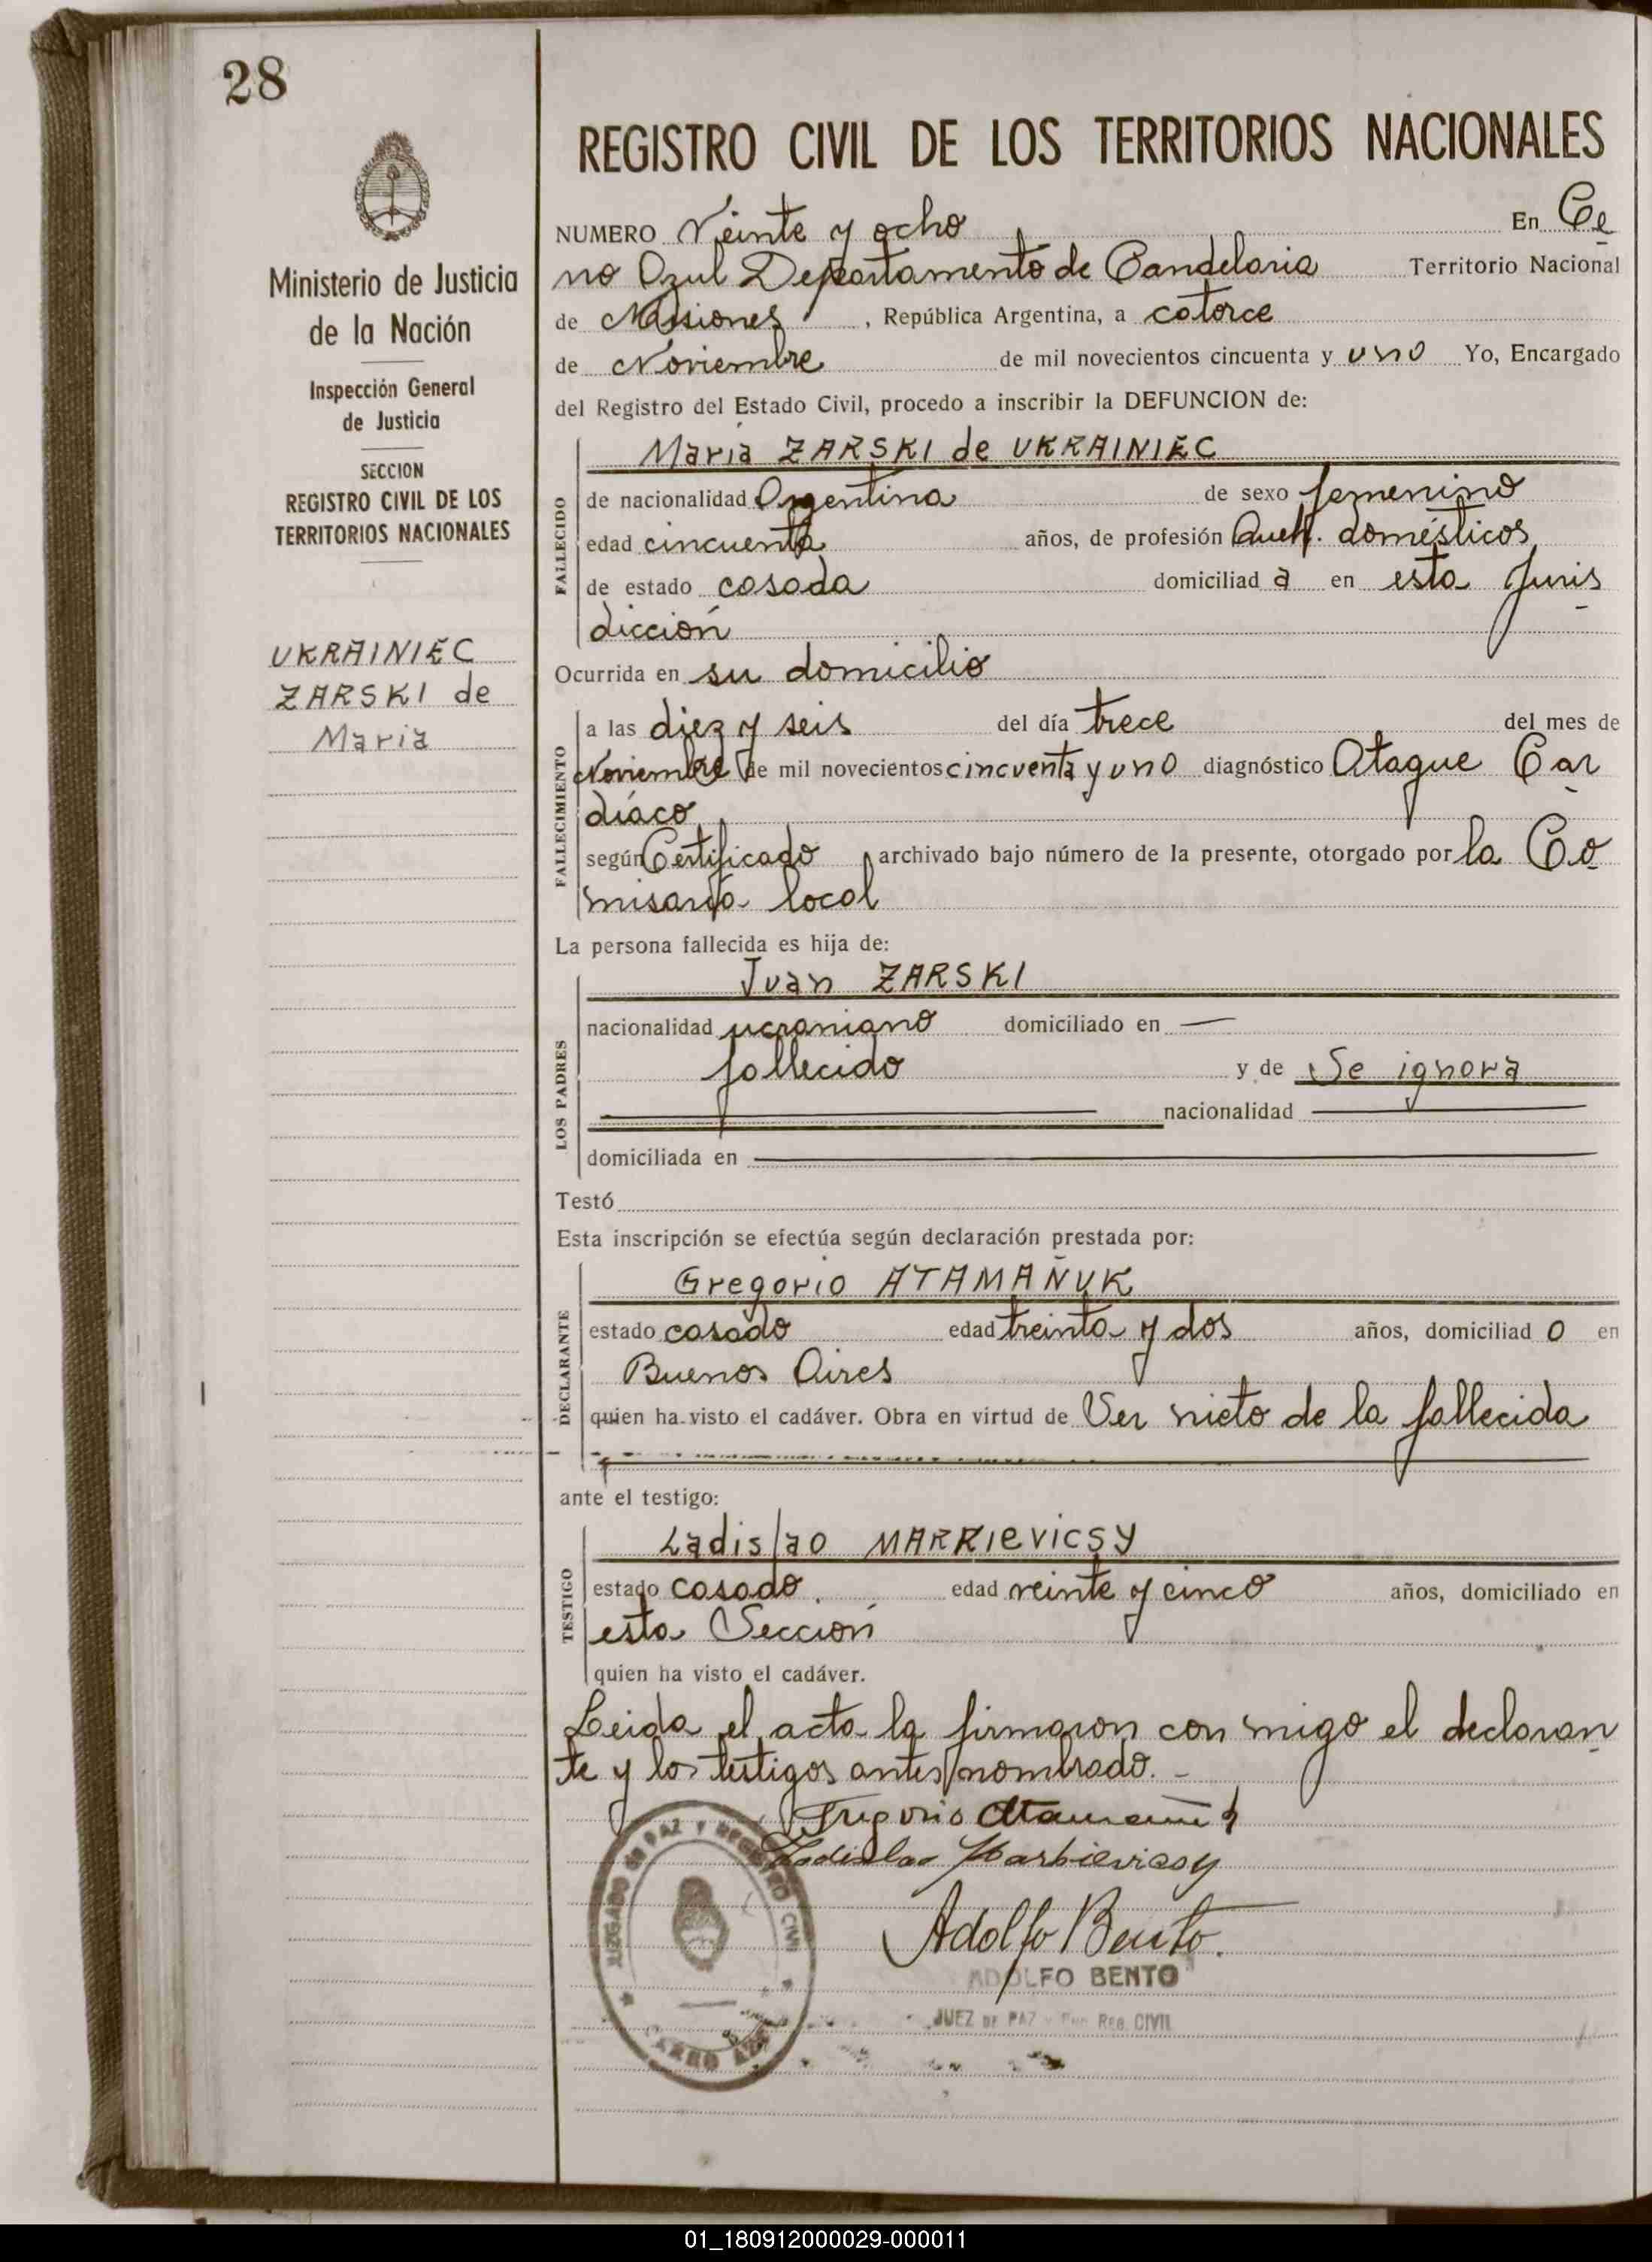 28
Ministerio de Justicia
de la Nación
Inspección General
de Justicia
SECCION
REGISTRO CIVIL DE LOS
TERRITORIOS NACIONALES
UKRAINIEC
ZARSKI de
Maria
REGISTRO CIVIL DE LOS TERRITORIOS NACIONALES
NUMERO Veinte y ocho En Ce
rro Azul Departamento de Candelaria Territorio Nacional
de Misiones, República Argentina, a catorce
de Noviembre de mil novecientos cincuenta y uno Yo, Encargado
del Registro del Estado Civil, procedo a inscribir la DEFUNCION de:
Maria ZARSKI de UKRAINIEC
FALLECIDO
de nacionalidad Argentina de sexo femenino
edad cincuenta años, de profesión Queh. domésticos
de estado casada domiciliad a en esta Juris
dicción
Ocurrida en su domicilio
FALLECIMIENTO
a las diez y seis del día trece del mes de
Noviembre de mil novecientos cincuenta y uno diagnóstico Ataque Car
díaco
según Certificado archivado bajo número de la presente, otorgado por la Co
misaría local
La persona fallecida es hija de:
LOS PADRES
Juan ZARSKI
nacionalidad ucraniano domiciliado en —
fallecido y de Se ignora
nacionalidad
domiciliada en
Testó
Esta inscripción se efectúa según declaración prestada por:
DECLARANTE
Gregorio ATAMAÑUK
estado casado edad treinta y dos años, domiciliad o en
Buenos Aires
quien ha visto el cadáver. Obra en virtud de Ser nieto de la fallecida
ante el testigo:
TESTIGO
Ladislao MARKIEVICSY
estado casado. edad veinte y cinco años, domiciliado en
esta Sección
quien ha visto el cadáver.
Leida el acta la firmaron con migo el declaran
te y los testigos antes nombrado. -
Ladislao Markievicsy
Adolfo Bento.
ADOLFO BENTO
JUEZ DE PAZ y Enc. REG. CIVIL
JUZGADO DE PAZ Y REGISTRO CIVIL
CERRO AZUL
01_180912000029-000011